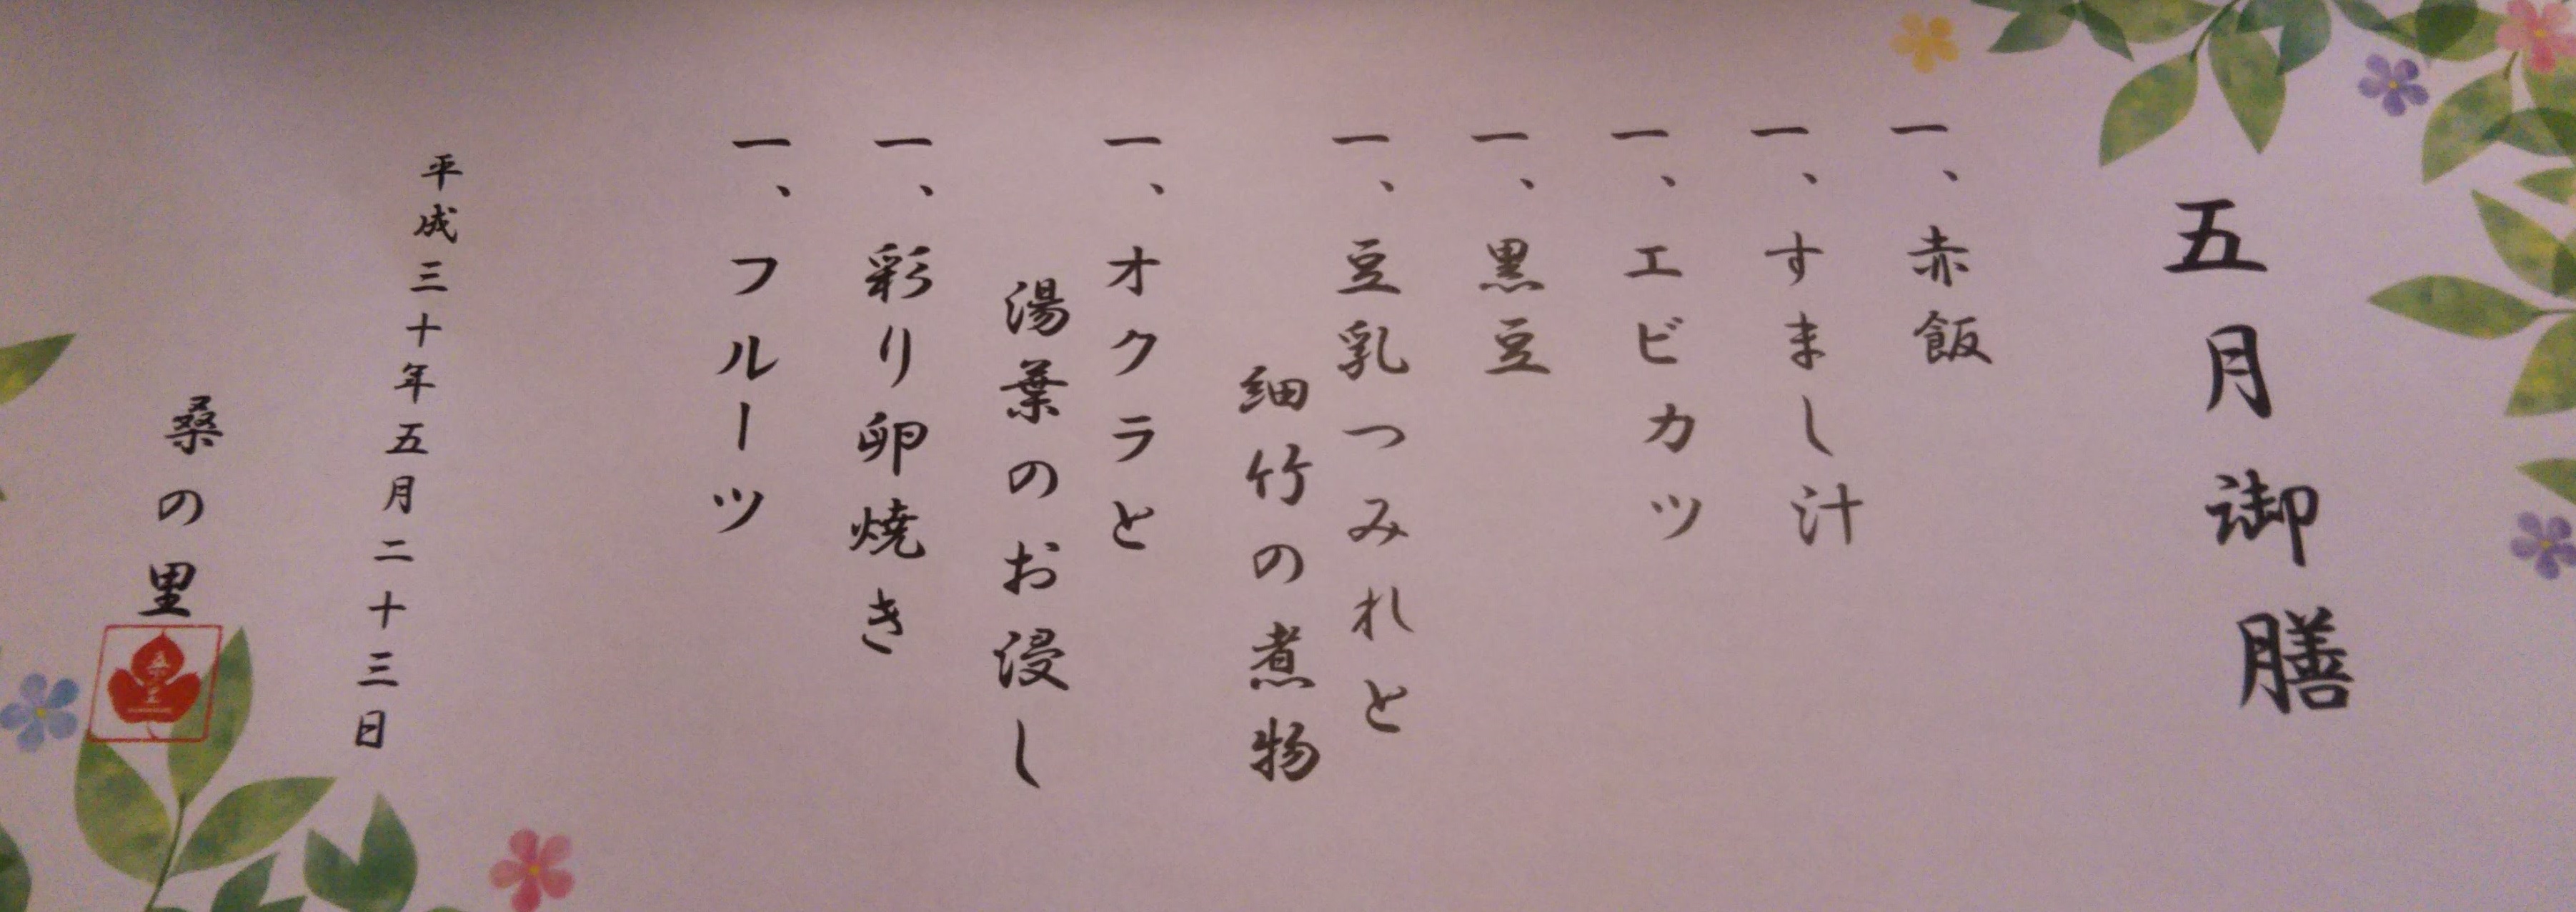 五月御膳
一、赤飯
一、すまし汁
一、エビカツ
一、黒豆
一、豆乳つみれと
細竹の煮物
一、オクラと
湯葉のお浸し
一、彩り卵焼き
一、フルーツ
平成三十年五月二十三日
桑の里